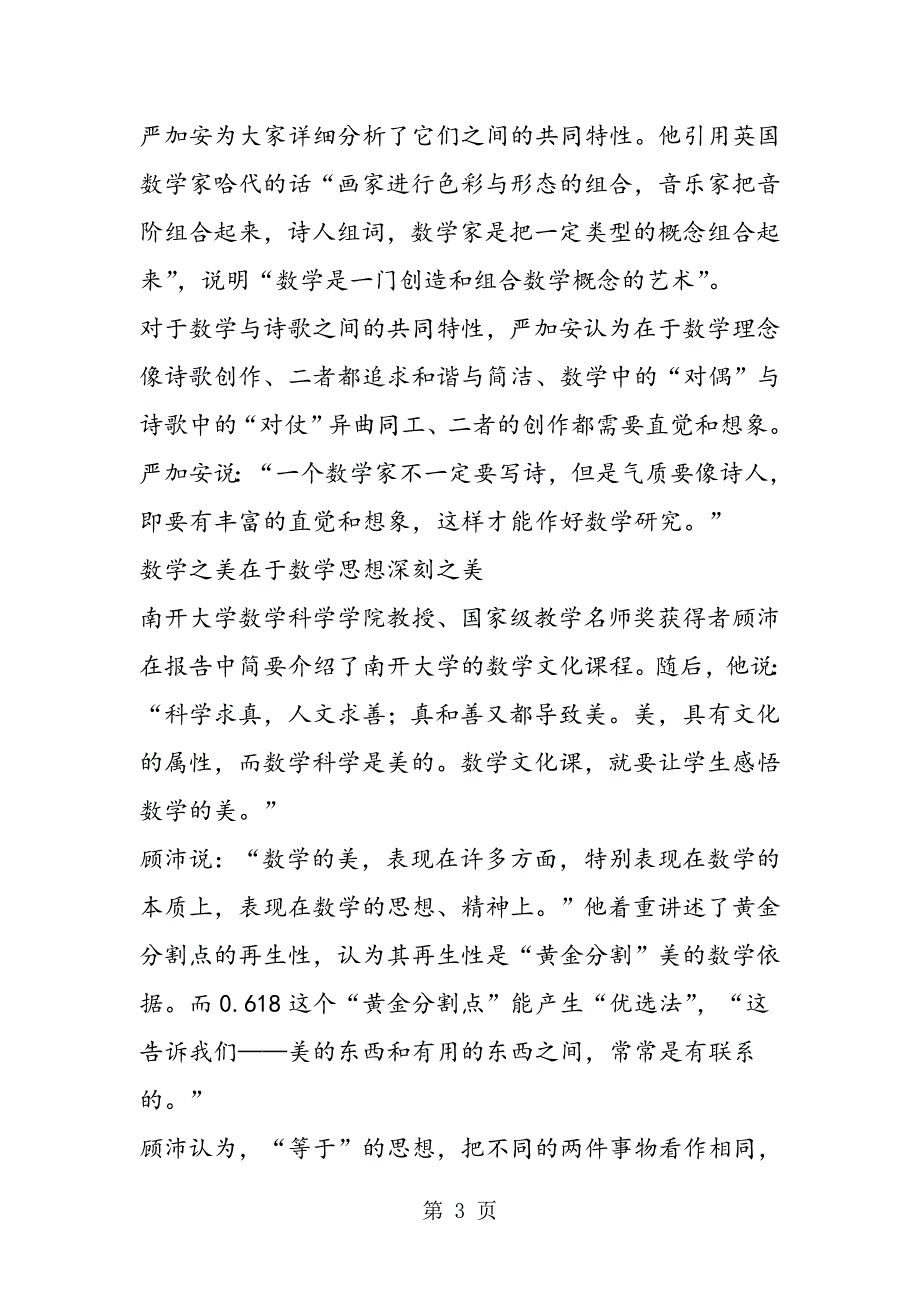 严加安为大家详细分析了它们之间的共同特性。他引用英国
数学家哈代的话“画家进行色彩与形态的组合，音乐家把音
阶组合起来，诗人组词，数学家是把一定类型的概念组合起
来”，说明“数学是一门创造和组合数学概念的艺术”。
对于数学与诗歌之间的共同特性，严加安认为在于数学理念
像诗歌创作、二者都追求和谐与简洁、数学中的“对偶”与
诗歌中的“对仗”异曲同工、二者的创作都需要直觉和想象。
严加安说：“一个数学家不一定要写诗，但是气质要像诗人，
即要有丰富的直觉和想象，这样才能作好数学研究。”
数学之美在于数学思想深刻之美
南开大学数学科学学院教授、国家级教学名师奖获得者顾沛
在报告中简要介绍了南开大学的数学文化课程。随后，他说：
“科学求真，人文求善；真和善又都导致美。美，具有文化
的属性，而数学科学是美的。数学文化课，就要让学生感悟
数学的美。”
顾沛说：“数学的美，表现在许多方面，特别表现在数学的
本质上，表现在数学的思想、精神上。”他着重讲述了黄金
分割点的再生性，认为其再生性是“黄金分割”美的数学依
据。而0.618这个“黄金分割点”能产生“优选法”，“这
告诉我们——美的东西和有用的东西之间，常常是有联系
的。”
顾沛认为，“等于”的思想，把不同的两件事物看作相同，
第 3 页